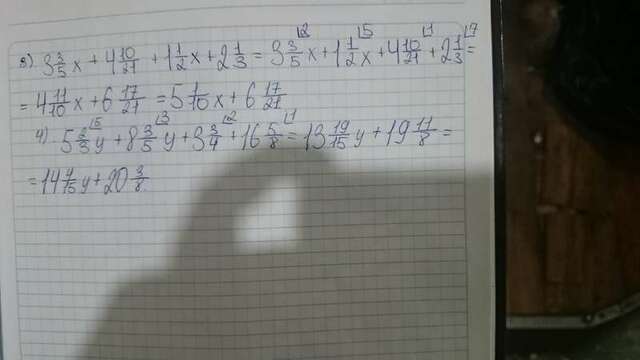 3) 3 3/5 x + 4 10/21 + 1 1/2 x + 2 1/3 = 3 3/5 \2 x + 1 1/2 \5 x + 4 10/21 \1 + 2 1/3 \7 =
= 4 11/10 x + 6 17/21 = 5 1/10 x + 6 17/21
4) 5 2/3 \5 y + 8 3/5 \3 y + 3 3/4 \2 + 16 5/8 \1 = 13 19/15 y + 19 11/8 =
= 14 4/15 y + 20 3/8.